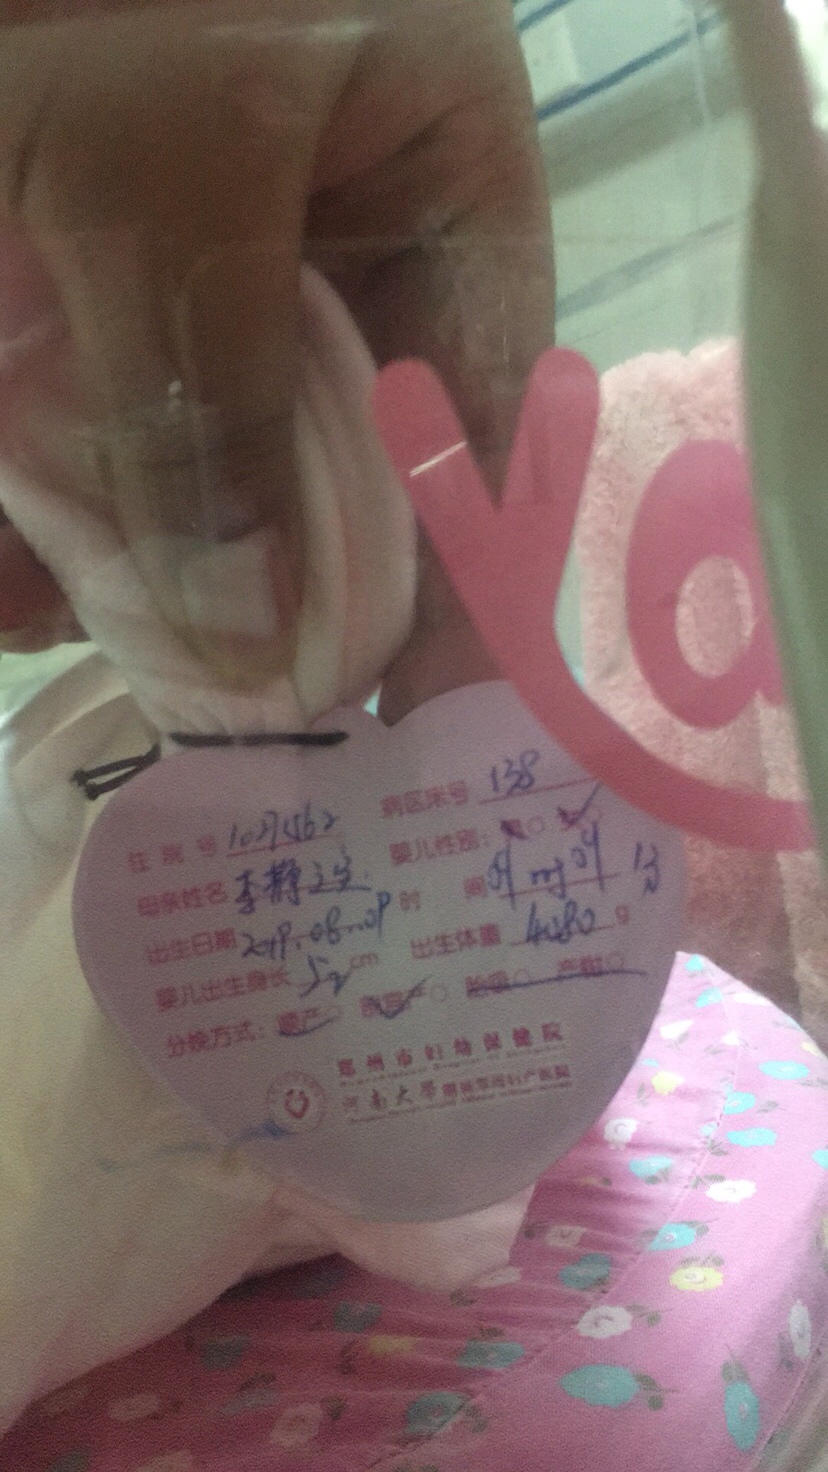 ya
住院号 1027462 病区床号 138
母亲姓名 李静 婴儿性别: 男○ ✓
出生日期 2019.08.09 时间 09 时 09 分
婴儿出生身长 52 cm 出生体重 4080 g
分娩方式: 顺产○ 剖宫产○ 胎吸○ 产钳○
郑州市妇幼保健院
河南大学郑州市妇产医院